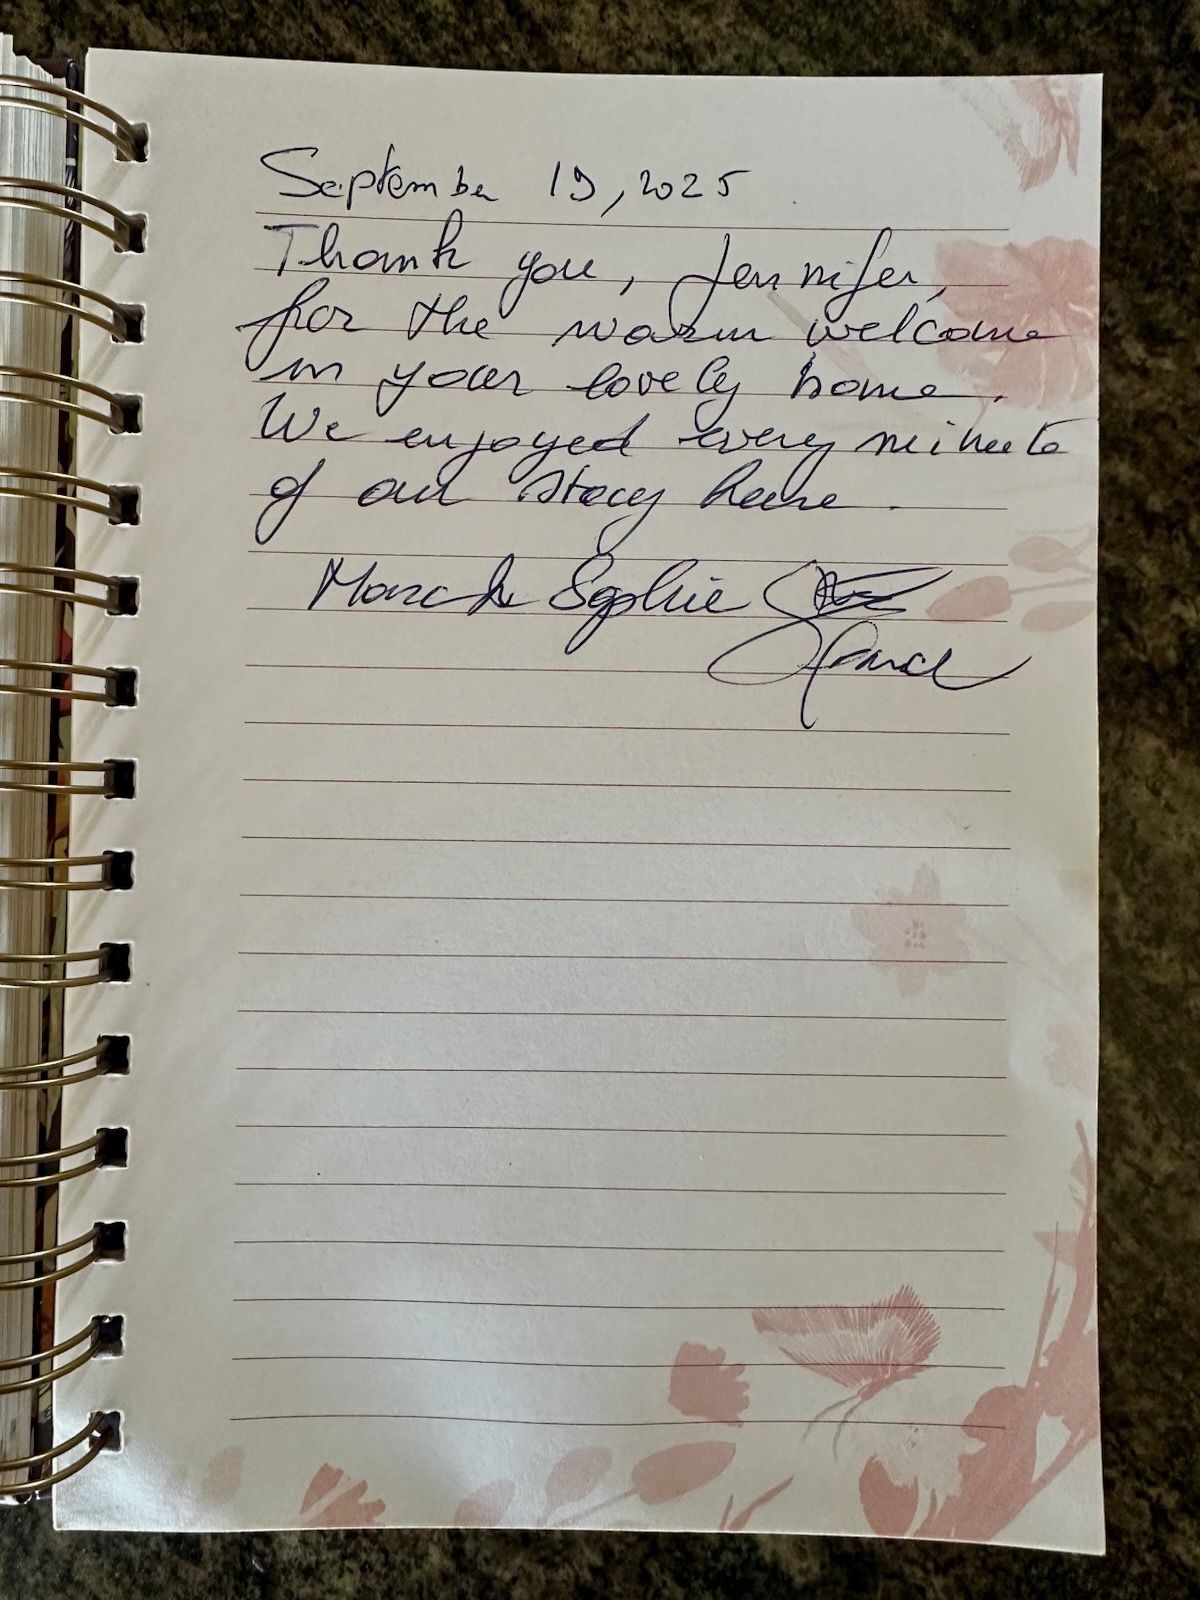 September 19, 2025
Thank you, Jennifer,
for the warm welcome
in your lovely home.
We enjoyed every minute
of our stay here.
Marc & Sophie